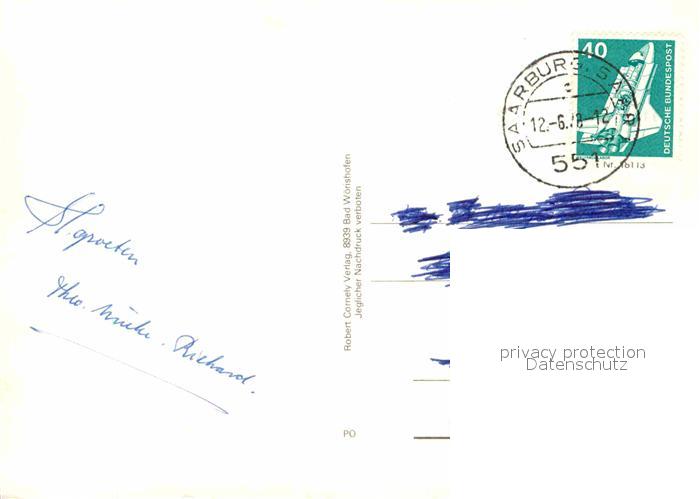 40
DEUTSCHE BUNDESPOST
SAARBURG
12.-6.78-12
551
Robert Cornely Verlag, 8939 Bad Wörishofen
Jeglicher Nachdruck verboten
groeten
Theo. Richard.
PO
privacy protection
Datenschutz